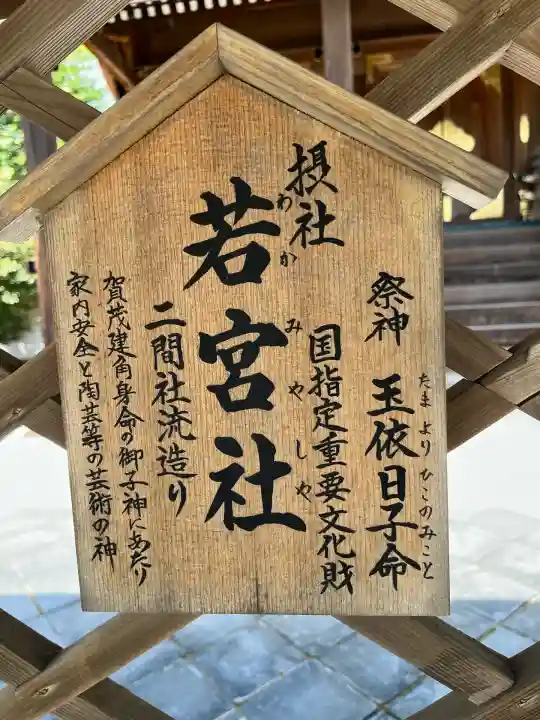 祭神 玉依日子命
たまよりひこのみこと
国指定重要文化財
摂社
若宮社
わかみやしや
二間社流造り
賀茂建角身命の御子神にあたり
家内安全と陶芸等の芸術の神